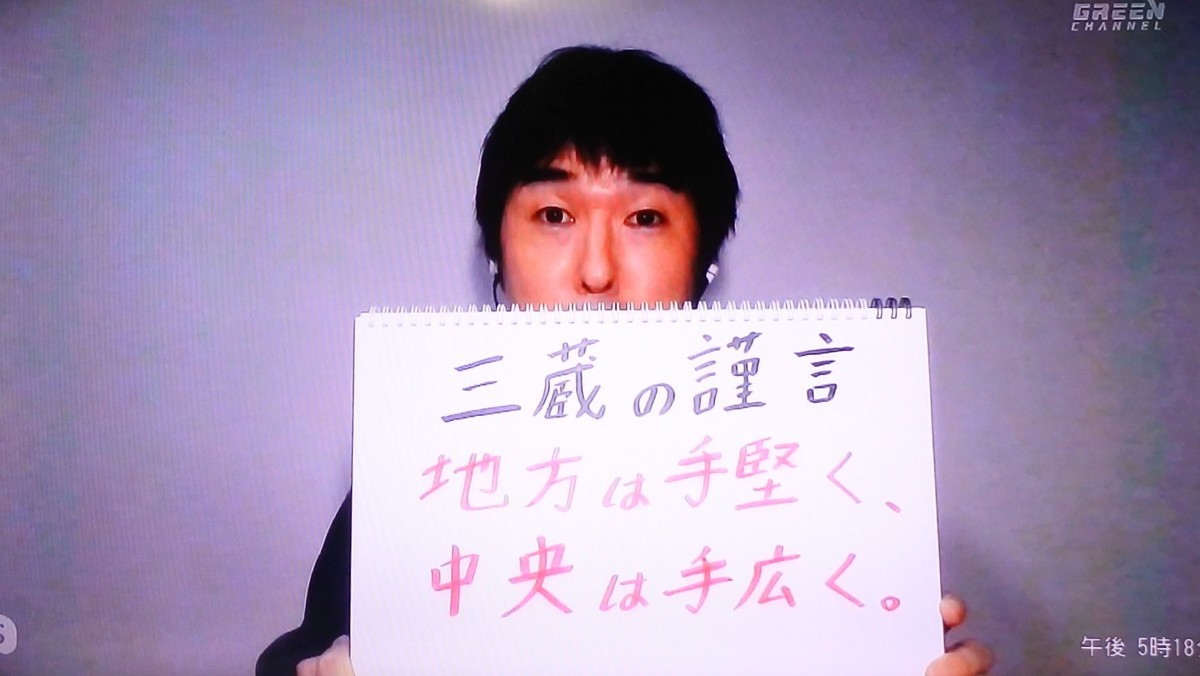 GREEN
CHANNEL
三蔵の謹言
地方は手堅く、
中央は手広く。
S
午後 5時18分